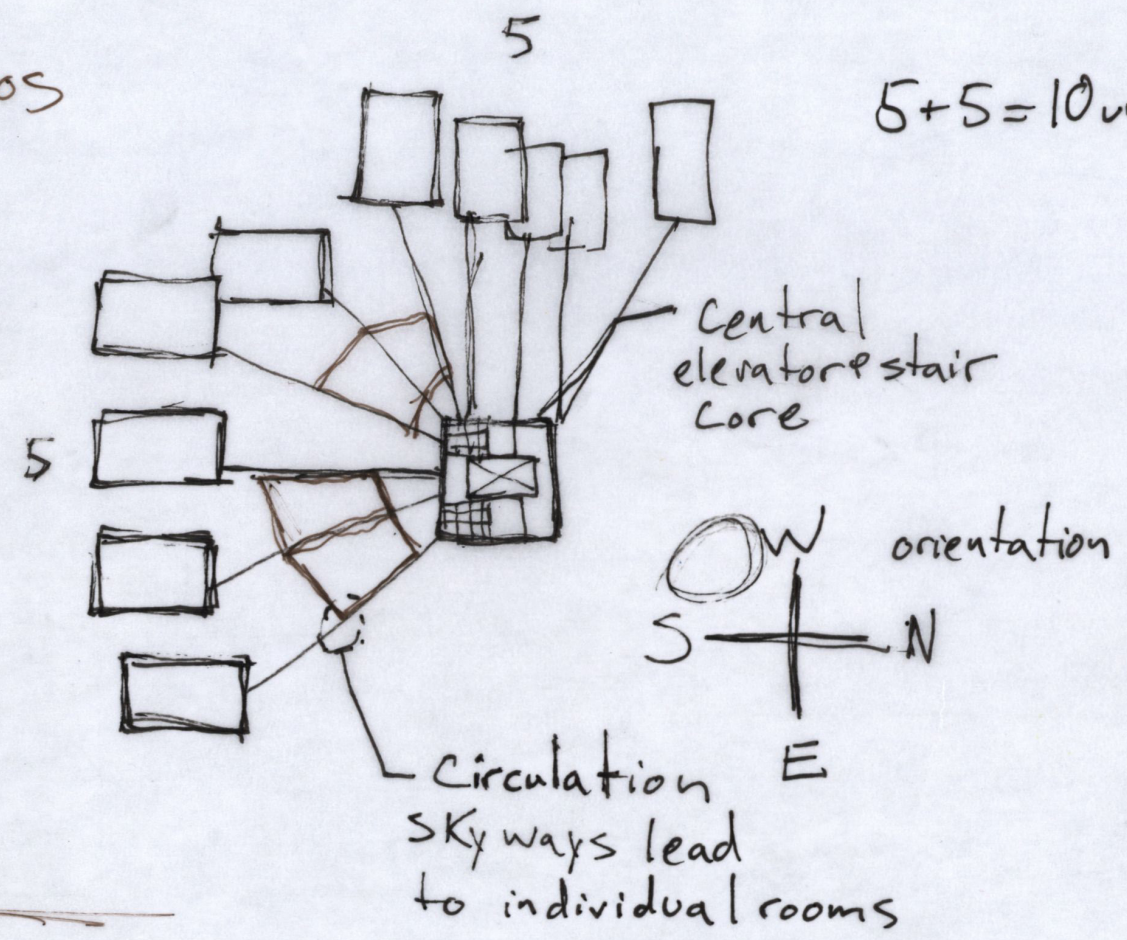 5
os
5+5=10
Central
elevator & stair
core
5
W
orientation
S
N
E
Circulation
Skyways lead
to individual rooms